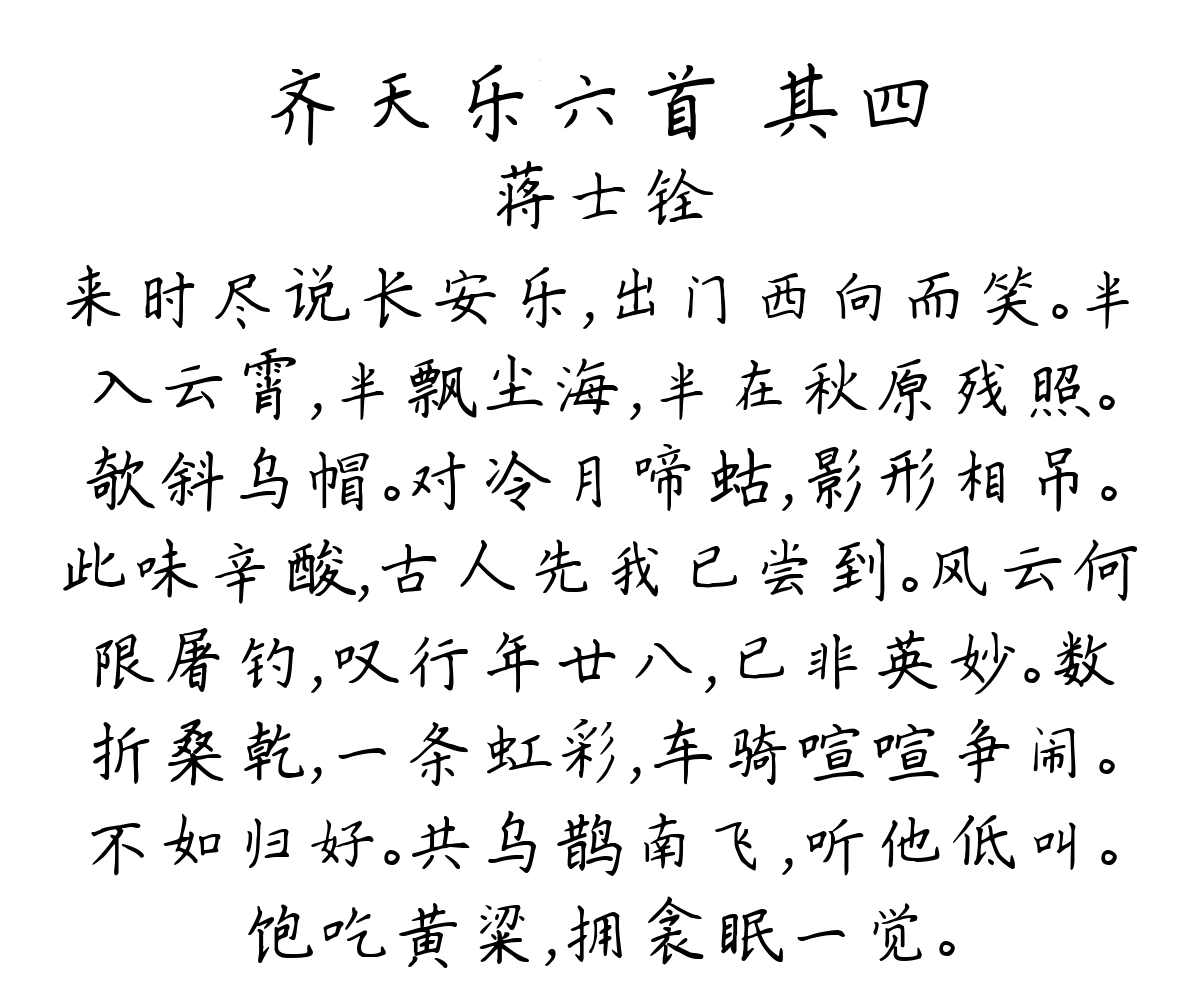 齐天乐六首 其四
蒋士铨
来时尽说长安乐,出门西向而笑。半
入云霄,半飘尘海,半在秋原残照。
欹斜乌帽。对冷月啼蛄,影形相吊。
此味辛酸,古人先我已尝到。风云何
限屠钓,叹行年廿八,已非英妙。数
折桑乾,一条虹彩,车骑喧喧争闹。
不如归好。共乌鹊南飞,听他低叫。
饱吃黄粱,拥衾眠一觉。